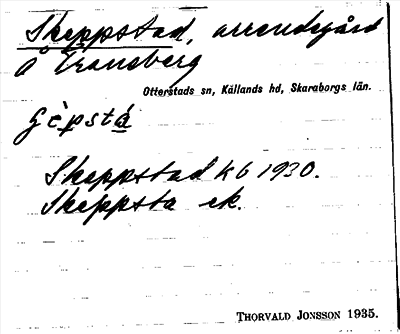 Skeppstad, arrendegård
å Traneberg
Otterstads sn, Kållands hd, Skaraborgs län.
Skeppstad kb 1930.
Skeppsta ek.
THORVALD JONSSON 1935.